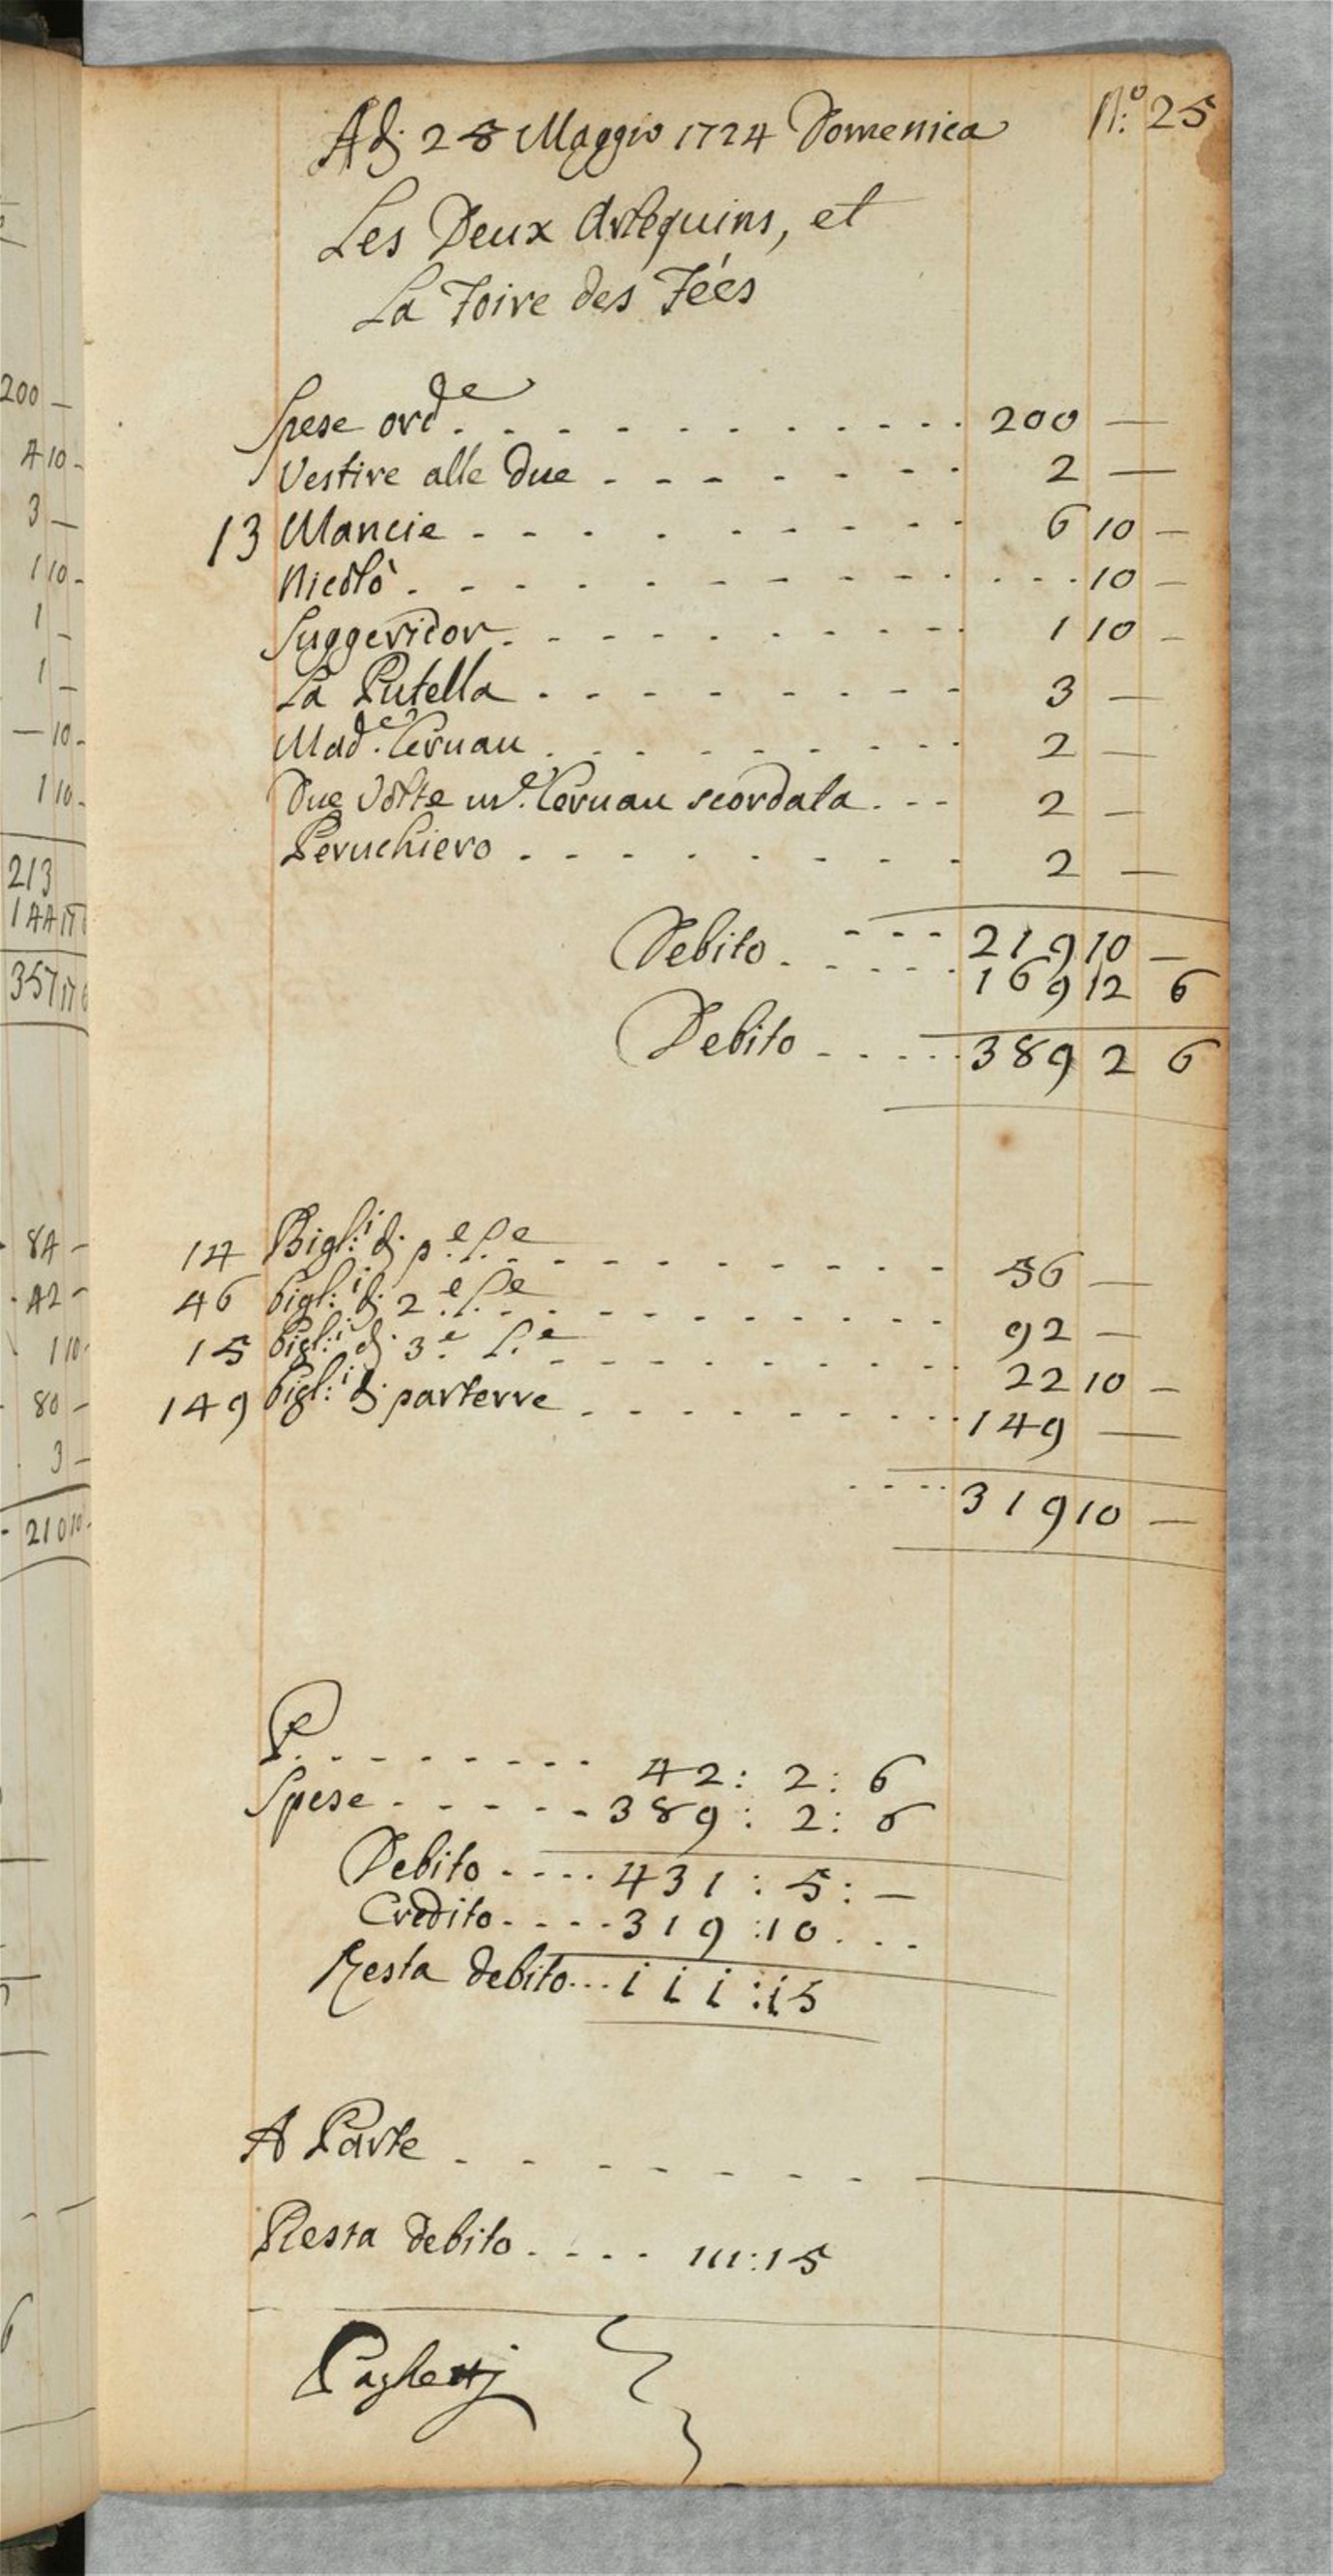 200 —
4 10 -
3 —
1 10 -
1 —
1 —
— 10 -
1 10 -
213
144 17 6
357 17 6
84 -
42 -
1 10 -
80 -
3 -
210 10 -
N.º 25
Adj 28 Maggio 1724 Domenica
Les Deux Arlequins, et
La Foire des Fées
Spese ord.e 200 —
Vestire alle due 2 —
13 Mancie 6 10 —
Nicolò 10 —
Suggeridor 1 10 —
La Putella 3 —
Mad.e Cervau 2 —
Due volte m.e Cervau scordata 2 —
Peruchiero 2 —
Debito 219 10 —
169 12 6
Debito 389 2 6
14 Bigl:i dj p.e L.e 56 —
46 bigl:i dj 2.e L.e 92 —
15 bigl:i dj 3.e L.e 22 10 —
149 bigl:i dj parterre 149 —
319 10 —
P. 42: 2: 6
Spese 389: 2: 6
Debito 431: 5: —
Credito 319: 10
Resta debito 111:15
A Parte —
Resta debito 111:15
Paghettj